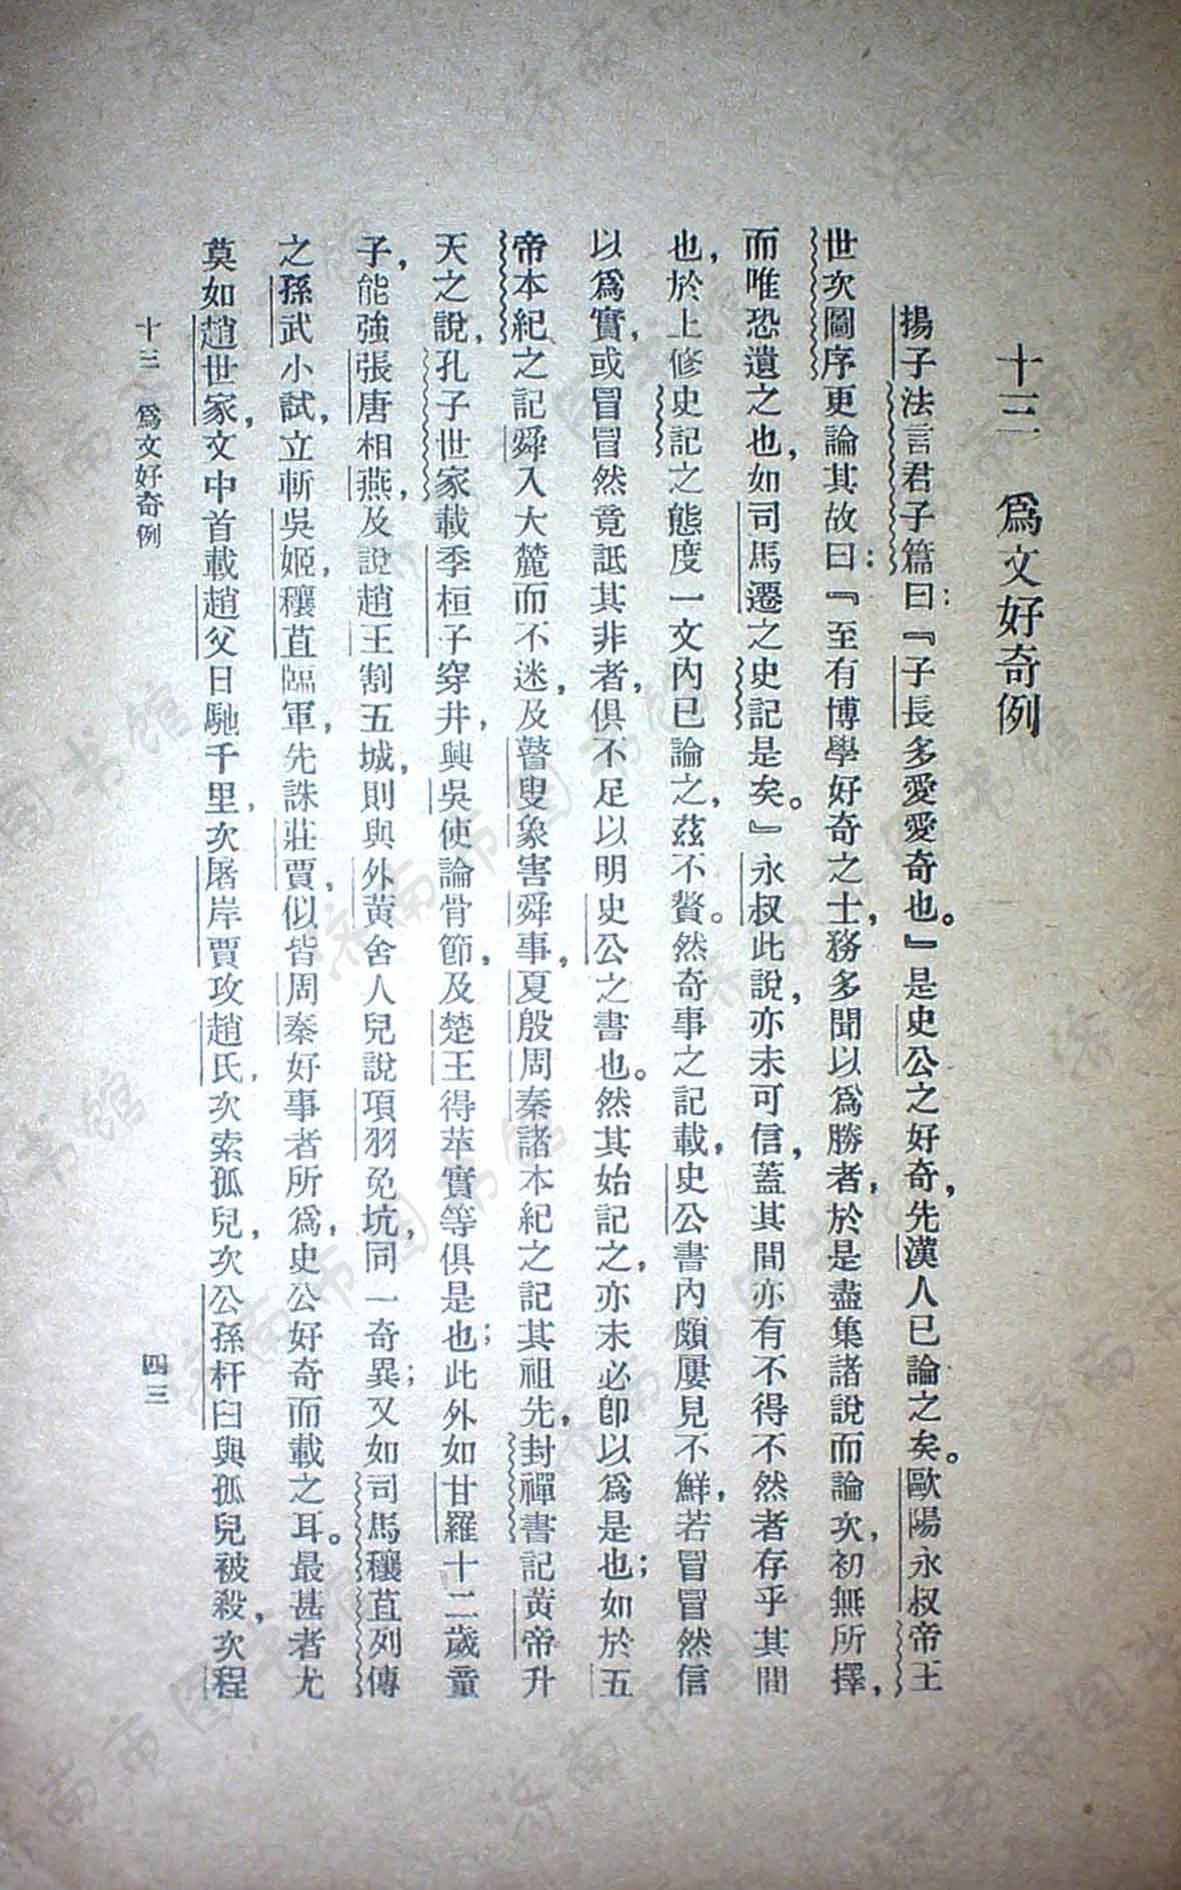 十三　爲文好奇例
揚子法言君子篇曰：『子長多愛愛奇也。』是史公之好奇，先漢人已論之矣。歐陽永叔帝王
世次圖序更論其故曰：『至有博學好奇之士，務多聞以爲勝者，於是盡集諸說而論次，初無所擇，
而唯恐遺之也，如司馬遷之史記是矣。』永叔此說，亦未可信，蓋其間亦有不得不然者存乎其間
也，於上修史記之態度一文內已論之，茲不贅。然奇事之記載，史公書內頗屢見不鮮，若冒冒然信
以爲實，或冒冒然竟詆其非者，俱不足以明史公之書也。然其始記之，亦未必卽以爲是也；如於五
帝本紀之記舜入大麓而不迷，及瞽叟象害舜事，夏殷周秦諸本紀之記其祖先，封禪書記黃帝升
天之說，孔子世家載季桓子穿井，興吳使論骨節，及楚王得萍實等俱是也；此外如甘羅十二歲童
子，能強張唐相燕，及說趙王割五城，則與外黃舍人兒說項羽免坑，同一奇異；又如司馬穰苴列傳
之孫武小試，立斬吳姬，穰苴臨軍，先誅莊賈，似皆周秦好事者所爲，史公好奇而載之耳。最甚者尤
莫如趙世家，文中首載趙父日馳千里，次屠岸賈攻趙氏，次索孤兒，次公孫杵臼與孤兒被殺，次程
十三　爲文好奇例
四三
济南市图书馆